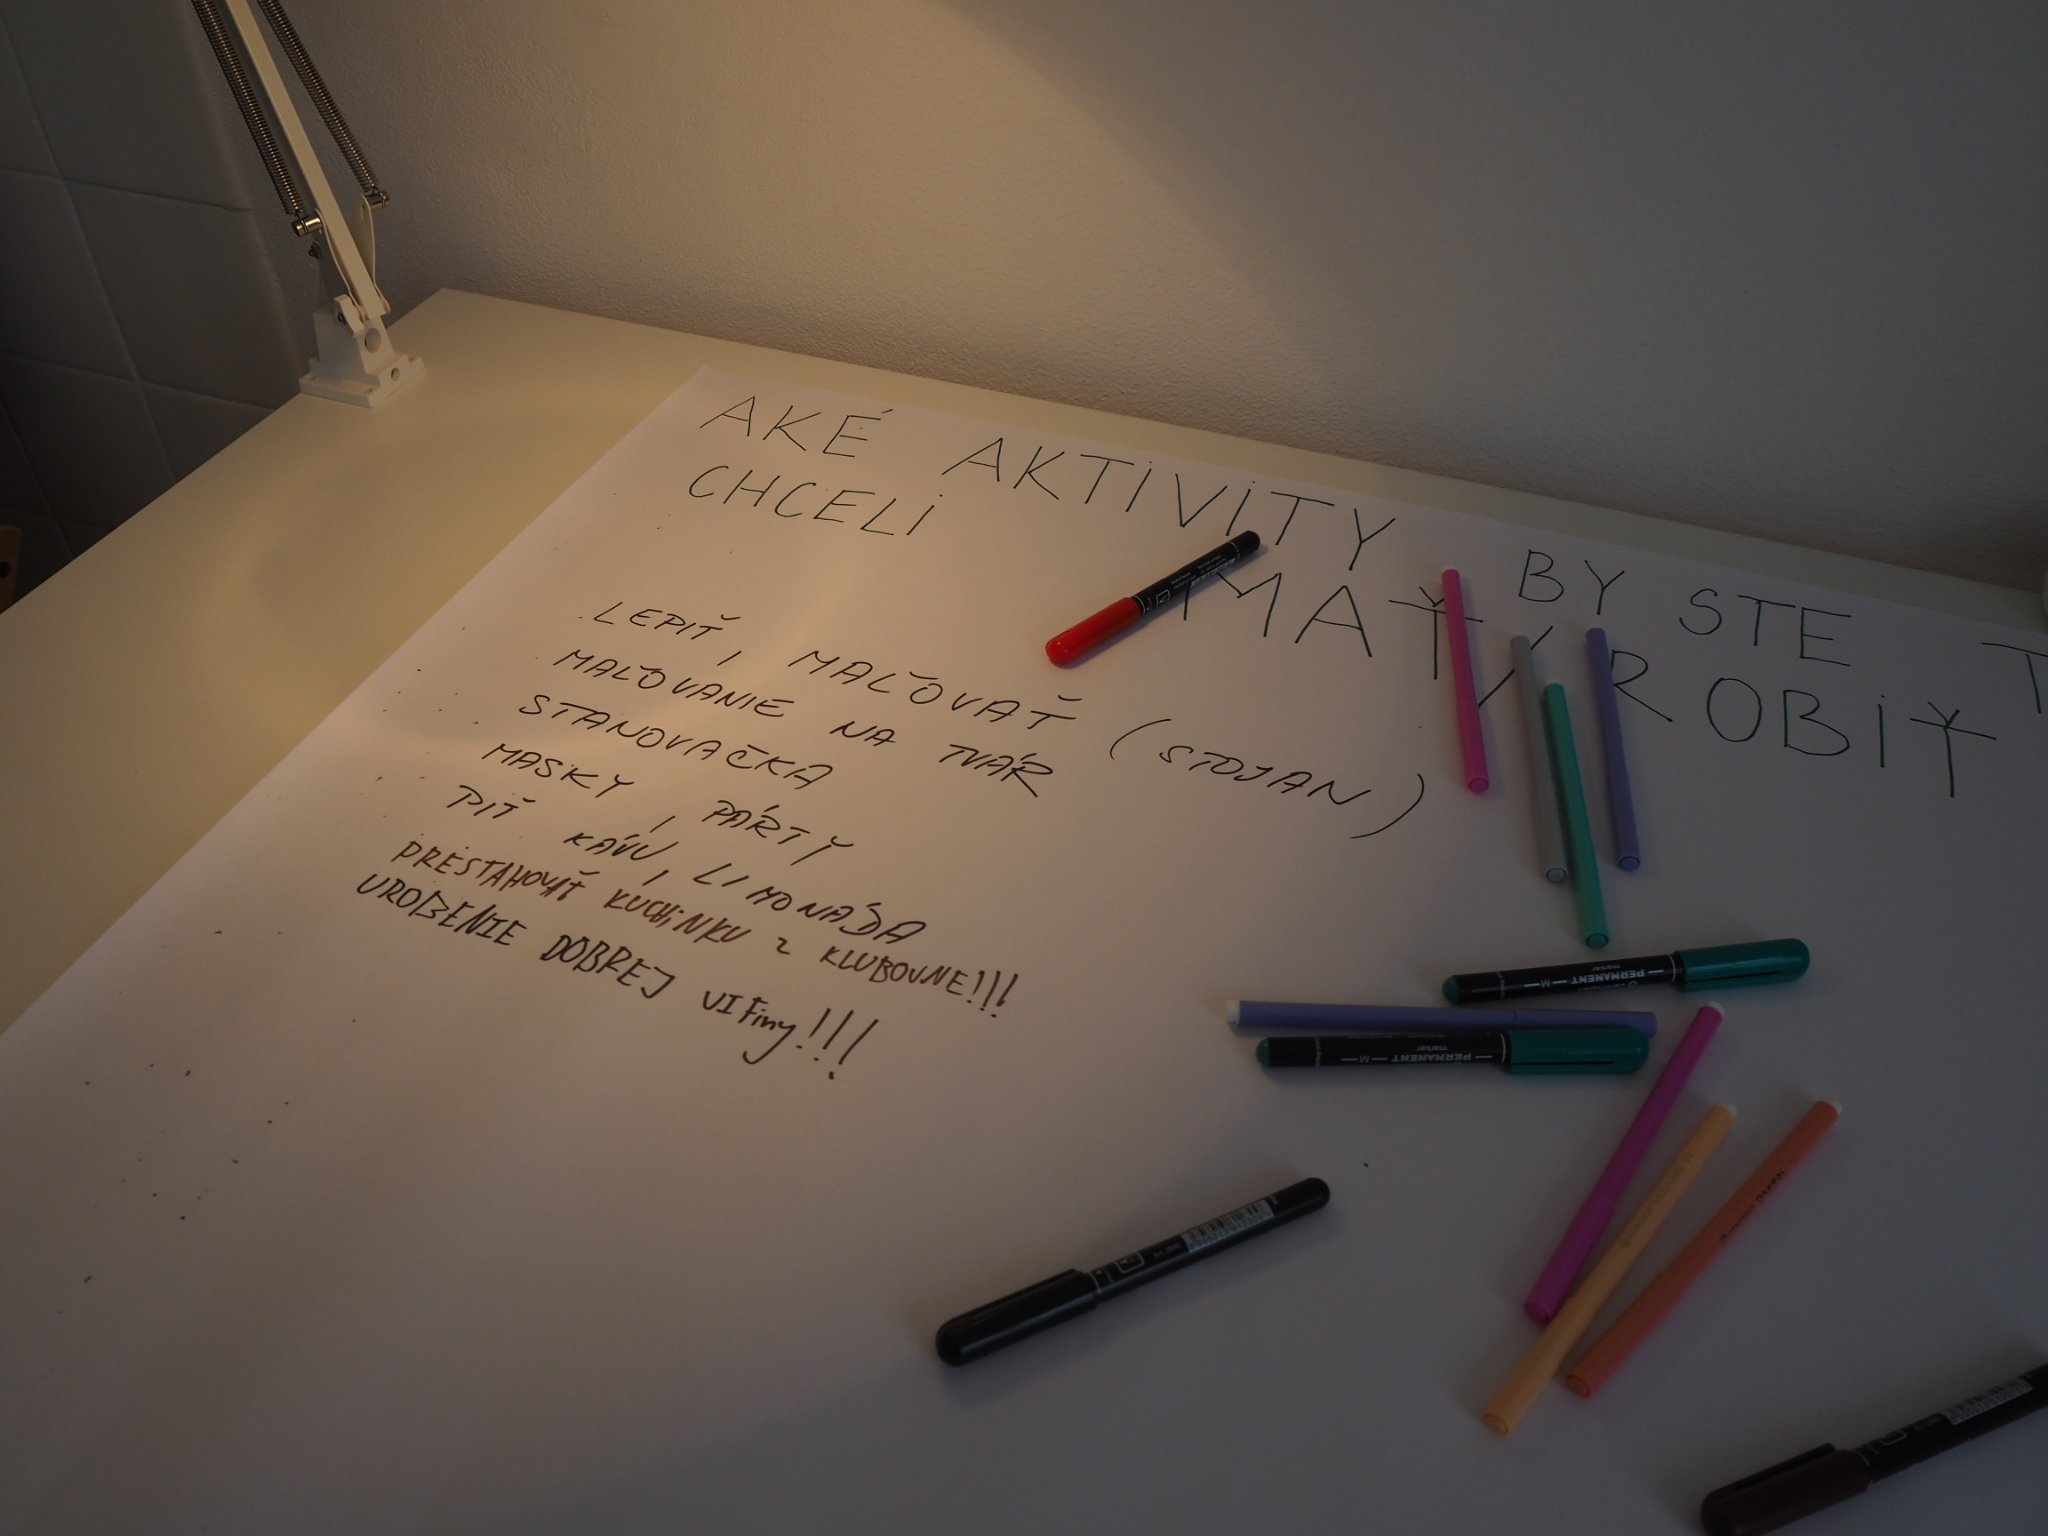 AKÉ AKTIVITY BY STE T
CHCELI MAŤ/ROBIŤ
LEPIŤ, MAĽOVAŤ (STOJAN)
MAĽOVANIE NA TVÁR
STANOVAČKA
MASKY, PÁRTY
PIŤ KÁVU, LIMONÁDA
PRESTAHOVAŤ KUCHiNKU z KLUBOVNE!!!
UROBENIE DOBREJ VIFiny!!!
PERMANENT
marker
M
PERMANENT
marker
M